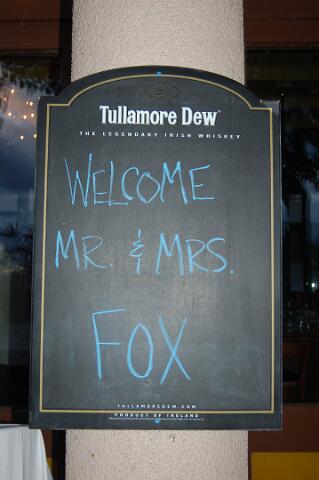 Tullamore Dew
THE LEGENDARY IRISH WHISKEY
WELCOME
MR. & MRS.
FOX
TULLAMOREDEW.COM
PRODUCT OF IRELAND